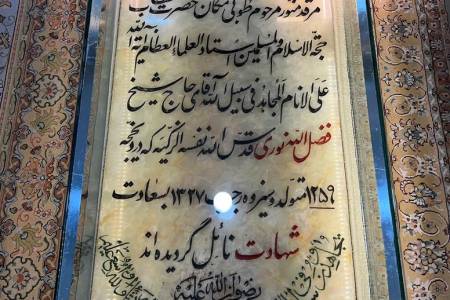 مرقد منور مرحوم طوبی مکان حضرت
حجة الاسلام و المسلمین استاد العلماء العظام آیة الله
علی الانام المجاهد فی سبیل الله آقای حاج شیخ
فضل الله نوری قدس الله نفسه الزکیه که در ذیحجه
۱۲۵۹ متولد و سیزده رجب ۱۳۲۷ بسعادت
شهادت نائل گردیده اند
رضوان الله علیه